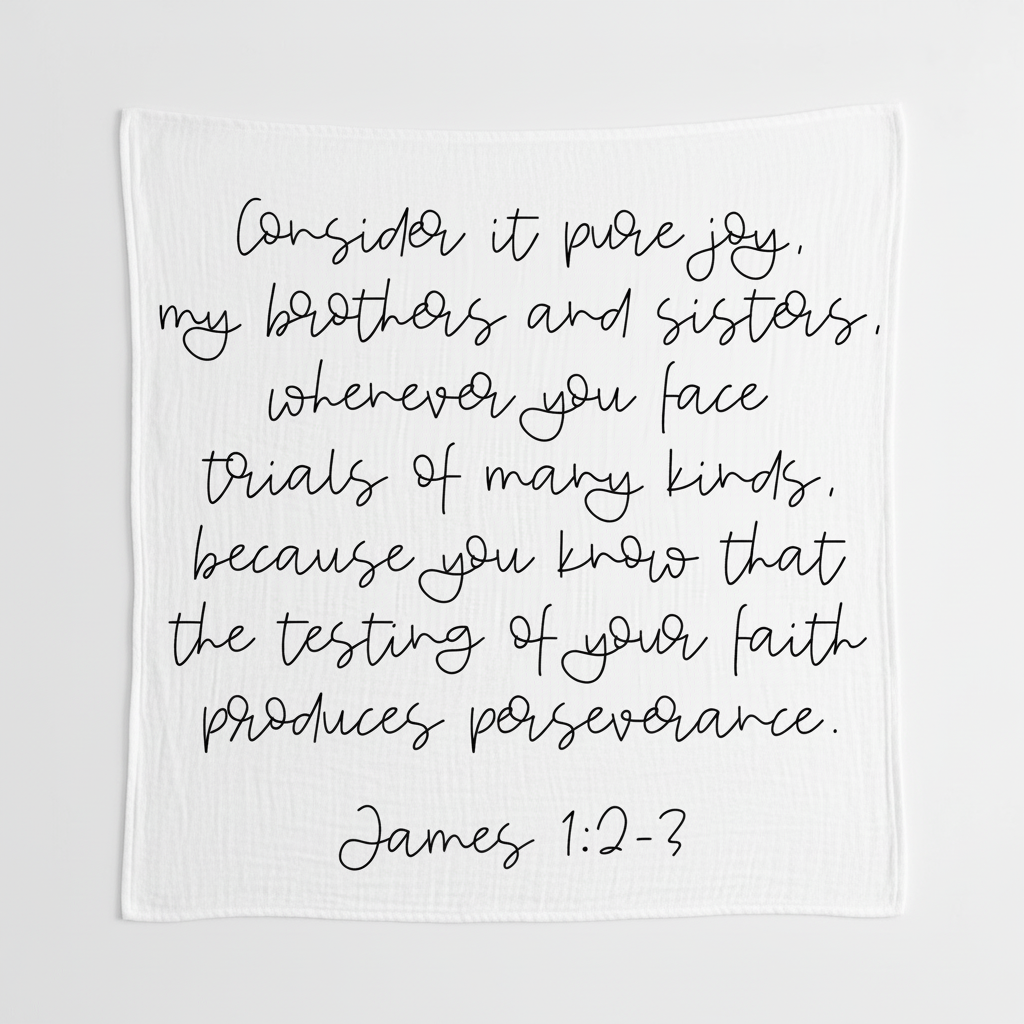 Consider it pure joy,
my brothers and sisters,
whenever you face
trials of many kinds,
because you know that
the testing of your faith
produces perseverance.
James 1:2-3